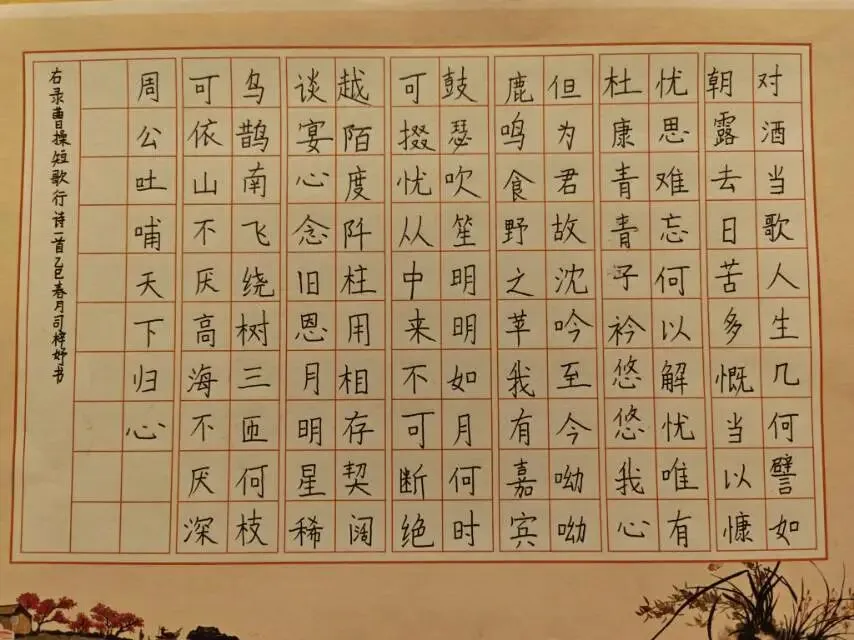 对酒当歌人生几何譬如
朝露去日苦多慨当以慷
忧思难忘何以解忧唯有
杜康青青子衿悠悠我心
但为君故沈吟至今呦呦
鹿鸣食野之苹我有嘉宾
鼓瑟吹笙明明如月何时
可掇忧从中来不可断绝
越陌度阡柱用相存契阔
谈宴心念旧恩月明星稀
乌鹊南飞绕树三匝何枝
可依山不厌高海不厌深
周公吐哺天下归心
右录曹操短歌行诗一首乙巳春月司梓妤书